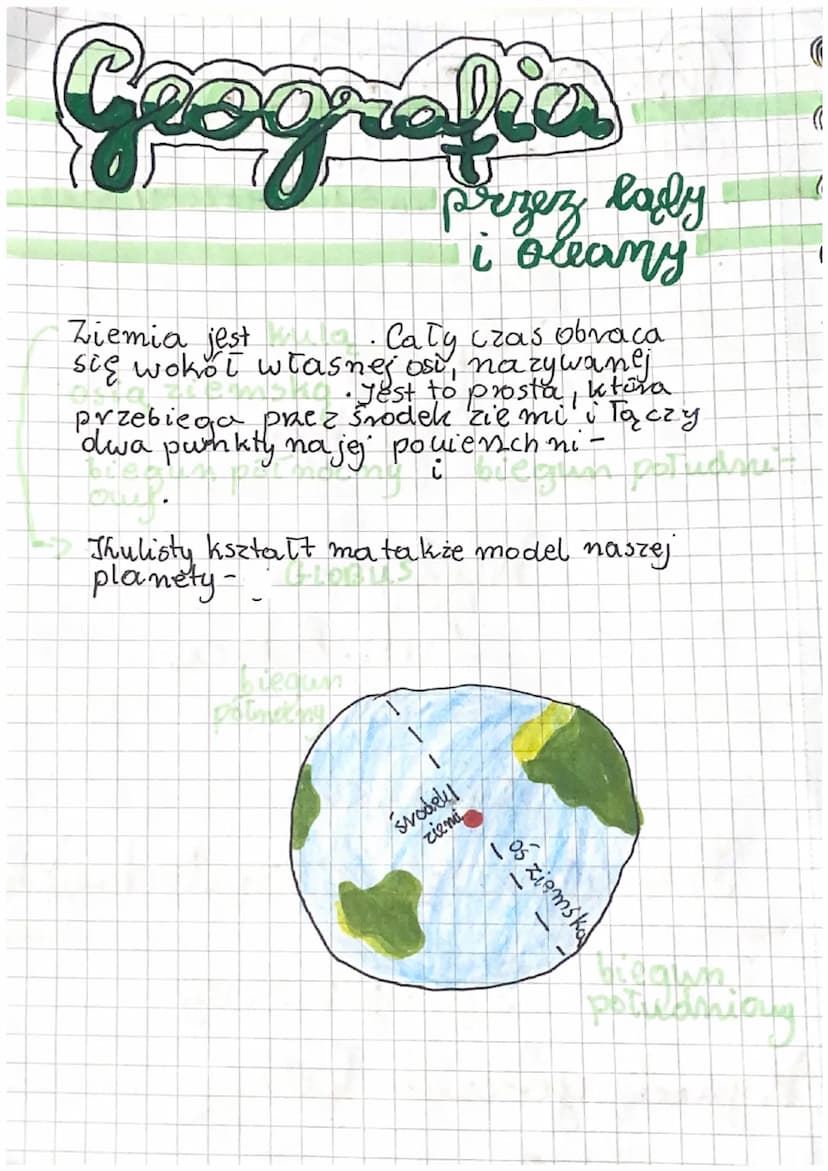 Geografia
przez lądy
i oceany
Ziemia jest kulą. Cały czas obraca
się wokół własnej osi, nazywanej
osią ziemską. Jest to prosta, która
przebiega przez środek ziemi i łączy
dwa punkty na jej powierzchni-
biegun północny i biegun południ-
owy.
Kulisty kształt ma także model naszej
planety- GLOBUS
biegun
północny
środek
ziemi
oś ziemska
biegun
południowy